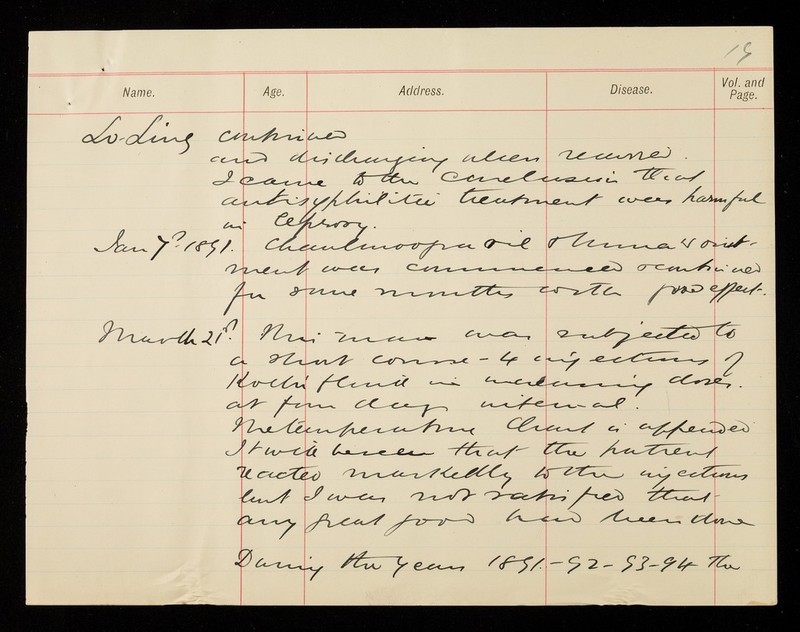 15
Name. Age. Address. Disease. Vol. and Page.
Lo-Ling continued
and discharging ulcers recurred.
I came to the conclusion that
antisyphilitic treatment was harmful
in leprosy.
Jan 7th 1891. Chaulmoogra oil & Unna's oint-
ment was commenced & continued
for some months with good effect.
March 21st. This man was subjected to
a short course - 4 injections of
Koch's fluid in increasing doses.
at four days interval.
The temperature chart is appended
It will be seen that the patient
reacted markedly to the injections
but I was not satisfied that
any great good had been done
During the years 1891-92-93-94 the